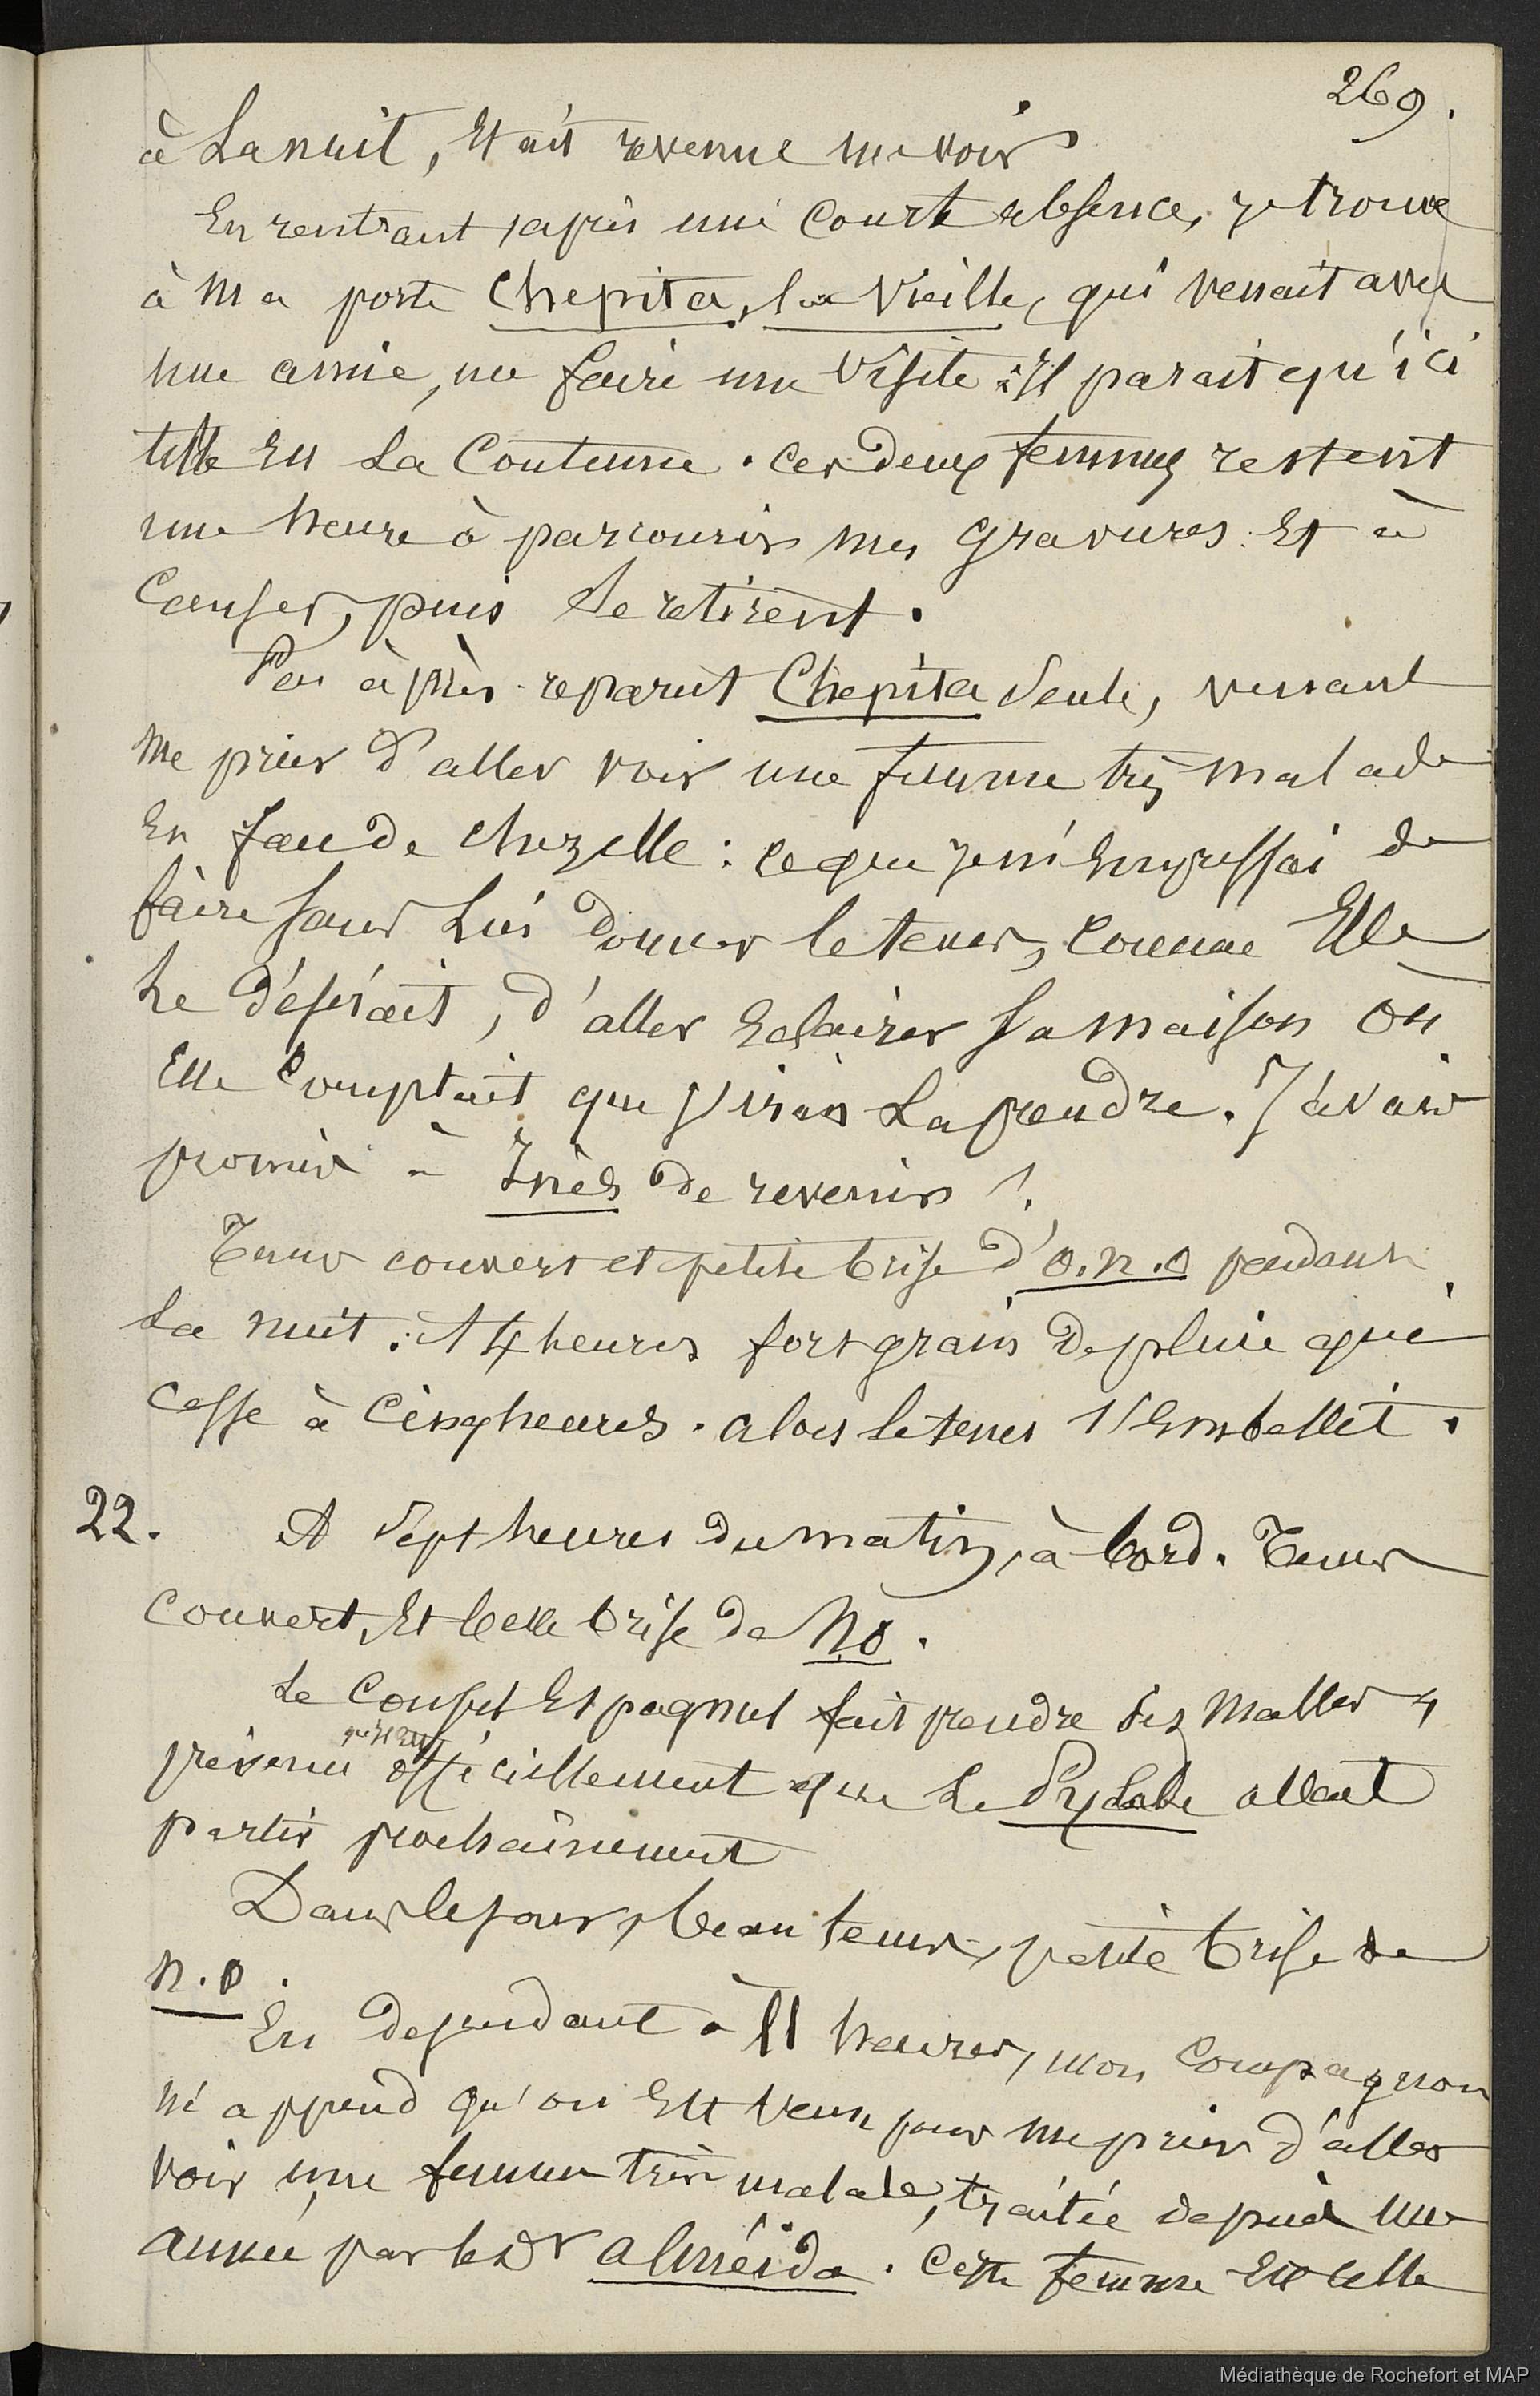 269.
à La nuit, Etait revenue me voir
En rentrant, après une Courte absence, je trouve
à Ma porte Chepita, la Vieille, qui venait avec
une amie, me faire une Visite : Il parait qu'ici
telle Est La Coutume. Ces deux femmes restent
une heure à parcourir mes gravures Et à
Causer, puis Se retirent.
Peu après reparut Chepita Seule, venant
Me prier d'aller voir une femme très malade
En face de chez elle : Ce que je m'Empressai de
faire sans Lui donner le tems, Comme Elle
Le désirait, d'aller Eclairer Sa maison Où
Elle Comptait que j'irais La prendre. J'avais
promis à Inès de revenir !
Tems couvert et petite brise d'O.n.O pendant
La nuit. A 4 heures fort grain De pluie qui
Cesse à Cinq heures. alors le tems s'Embellit.
22. A Sept heures Du matin, à bord. Tems
Couvert, Et belle brise de NO.
Le Consul Espagnol fait prendre Ses Malles,
prévenu officiellement que Le Pylade allait
partir prochainement
Dans le jour, beau tems, petite brise de
N.O.
En descendant à 11 heures, mon Compagnon
m'apprend qu'on Est Venu pour me prier d'aller
Voir une femme très malade, traitée depuis une
année par le Dr Alméida. Cette femme Est celle
Médiathèque de Rochefort et MAP